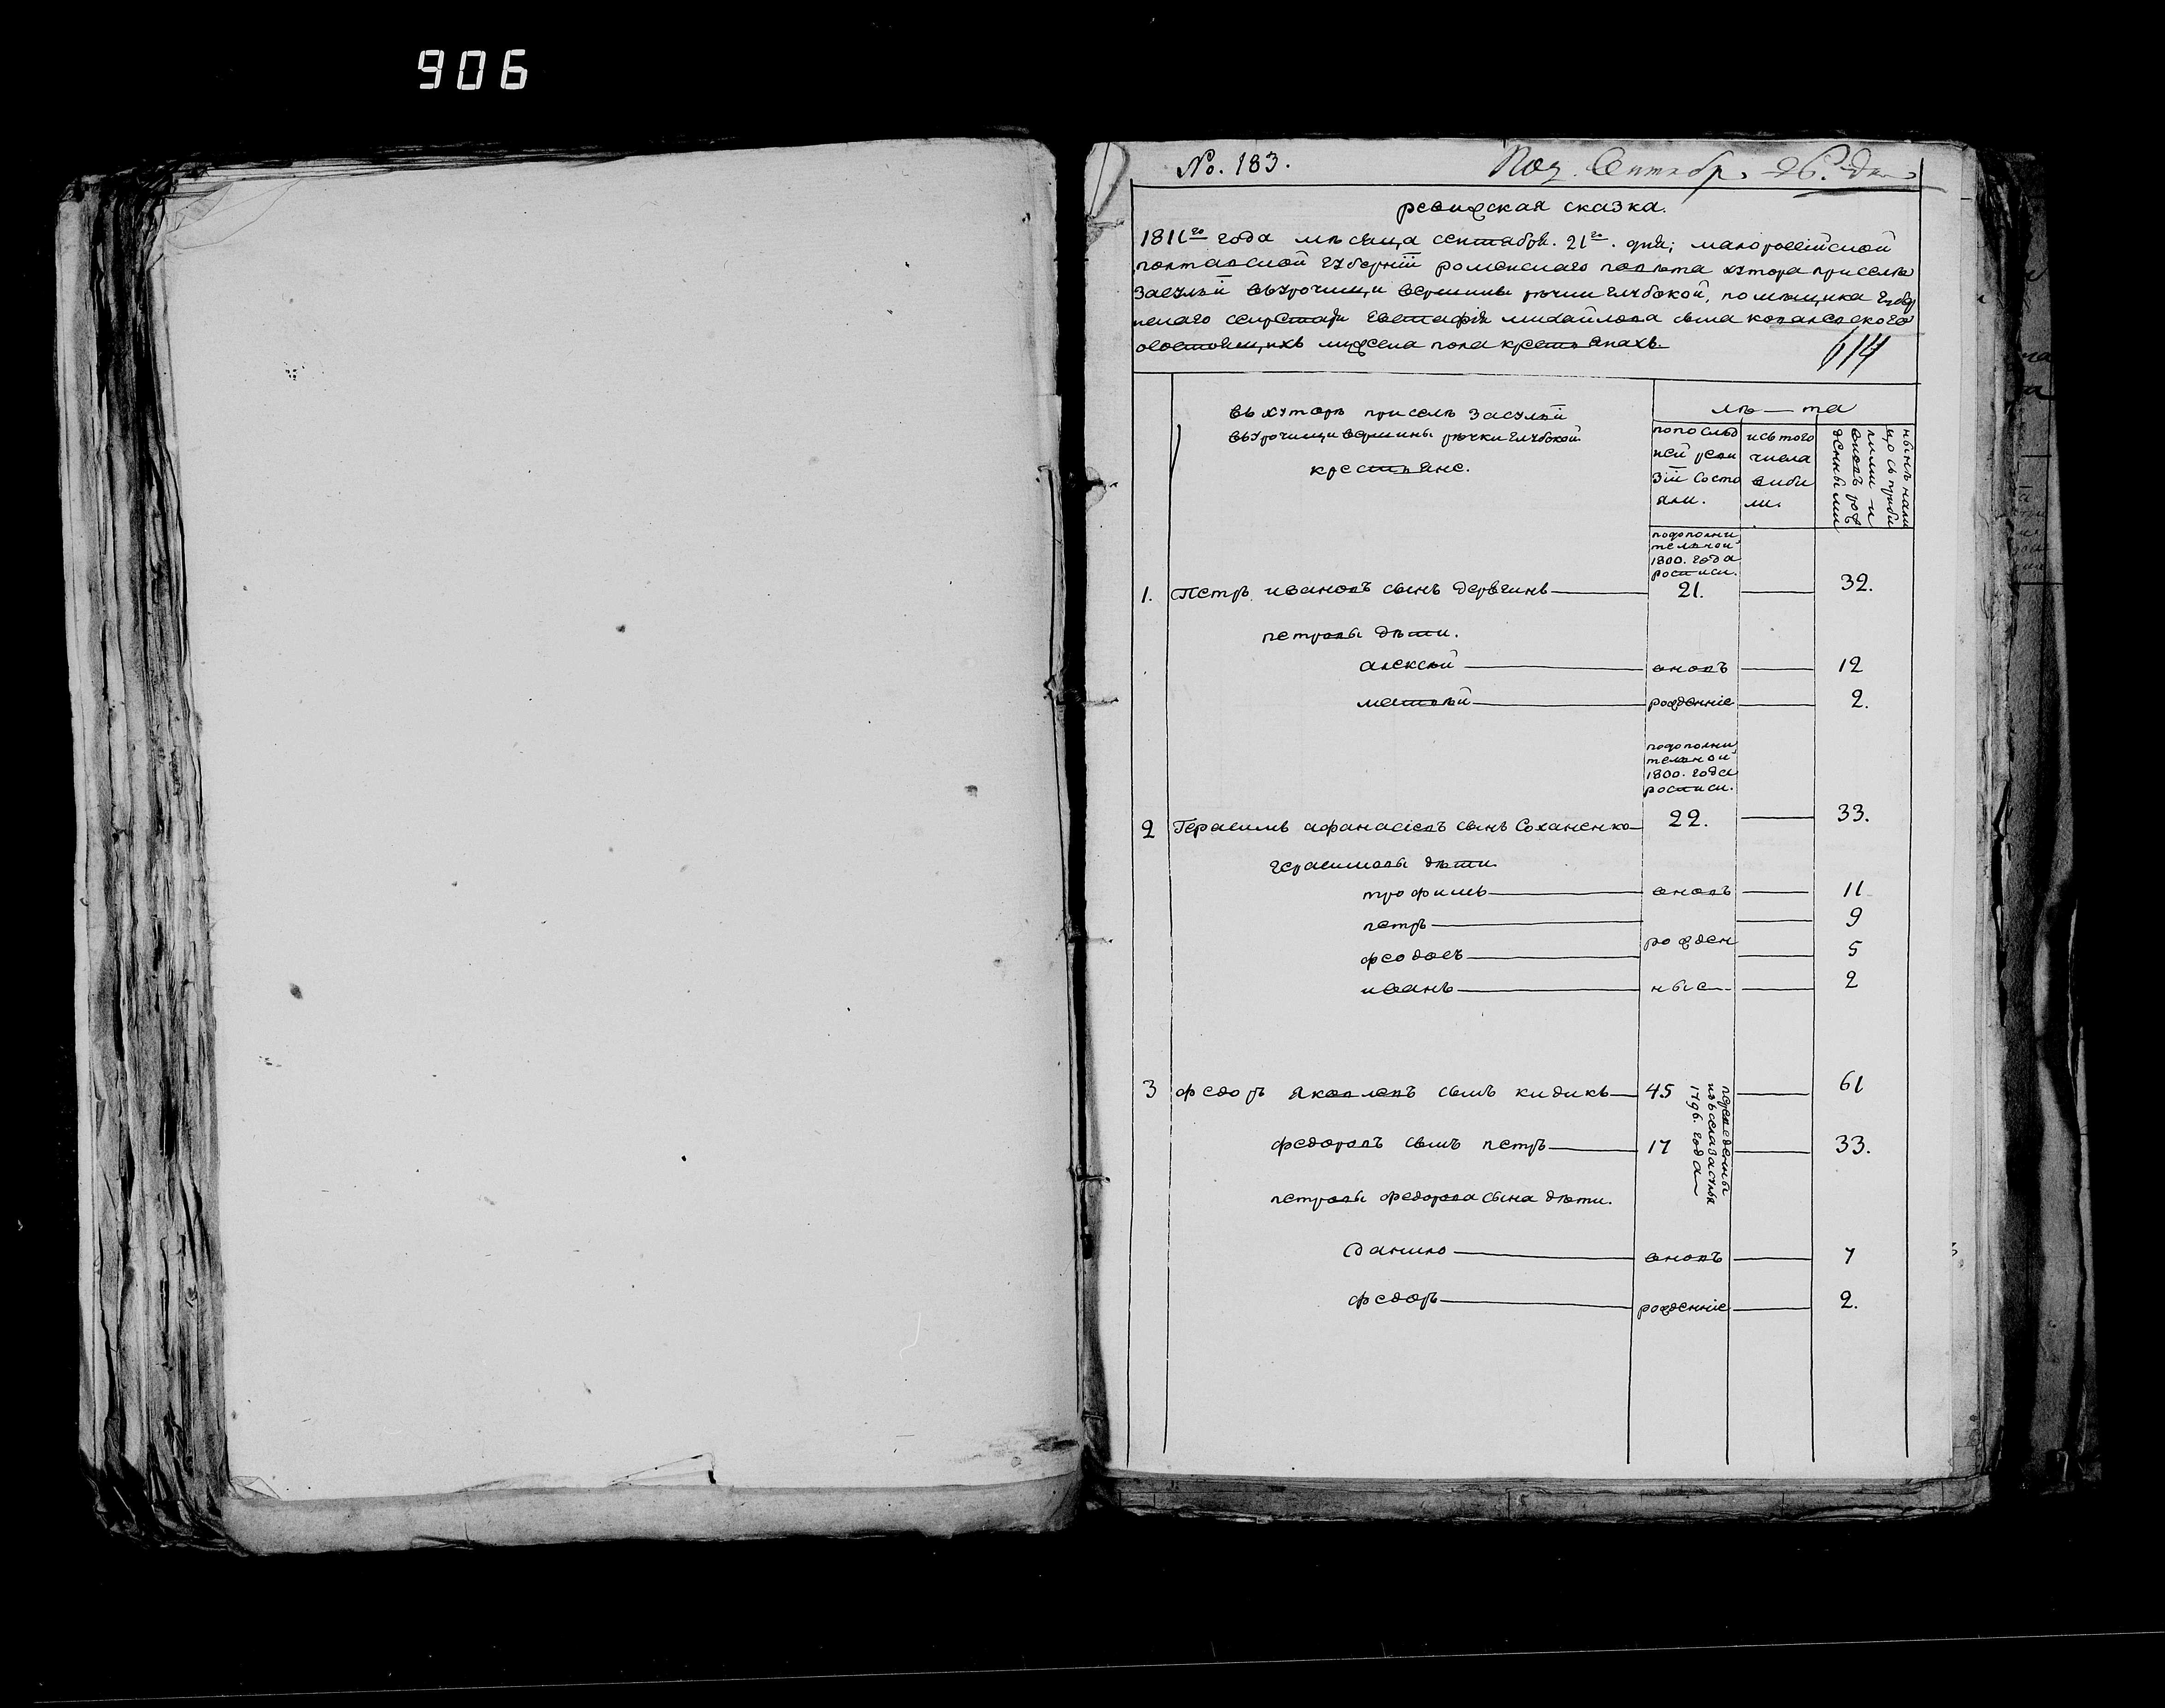 906
No. 183.
Пол. Сентябр. 26. дня
ревижская сказка.
1811го года мѣсяца сентября. 21го. дня; малороссійской
полтавской губерніи роменского повѣта хутора при селѣ
Засуллѣ въ урочищи вершины рѣчки глубокой, помѣщика губер
нскаго секретаря Евстафія михайлова сына ковалевского
о состоящихъ мужеска пола крестьянахъ.
614
въ хуторѣ при селѣ Засуллѣ
въ урочищи вершины рѣчки глубокой
крестьяне.
лѣ — та
по послѣд
ней реви
зіи состо
яли.
исъ того
числа
выбы
ли.
нынѣ нали
цо съ прибы
лыми и
вновь рож
денными
по дополни
тельной
1800. года
росписи.
1. Петръ ивановъ сынъ дервгинъ — 21. — 32.
петровы дѣти.
алексѣй — вновъ — 12
матвѣй — рожденніе — 2.
по дополни
тельной
1800. года
росписи.
2 Герасимъ афанасіевъ сынъ Соханенко — 22. — 33.
герасимовы дѣти
трофимъ — вновъ — 11
петръ — 9
рожден
феодосъ — 5
иванъ — ные — 2
3 федоръ яковлевъ сынъ кидикъ — 45 — 61
переведенны
изъ села засулья
1796. года
федоровъ сынъ петръ — 17 — 33.
петровы федорова сына дѣти.
данило — вновъ — 7
федоръ — рожденніе — 2.